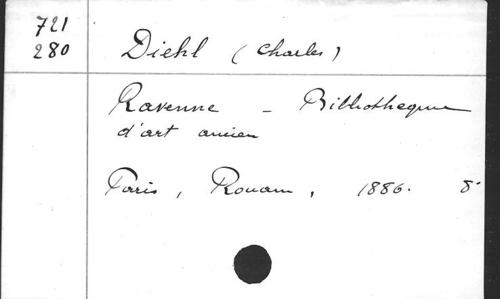 721
280
Diehl (Charles)
Ravenne - Bibliothèque
d'art ancien
Paris, Rouam, 1886. 8°